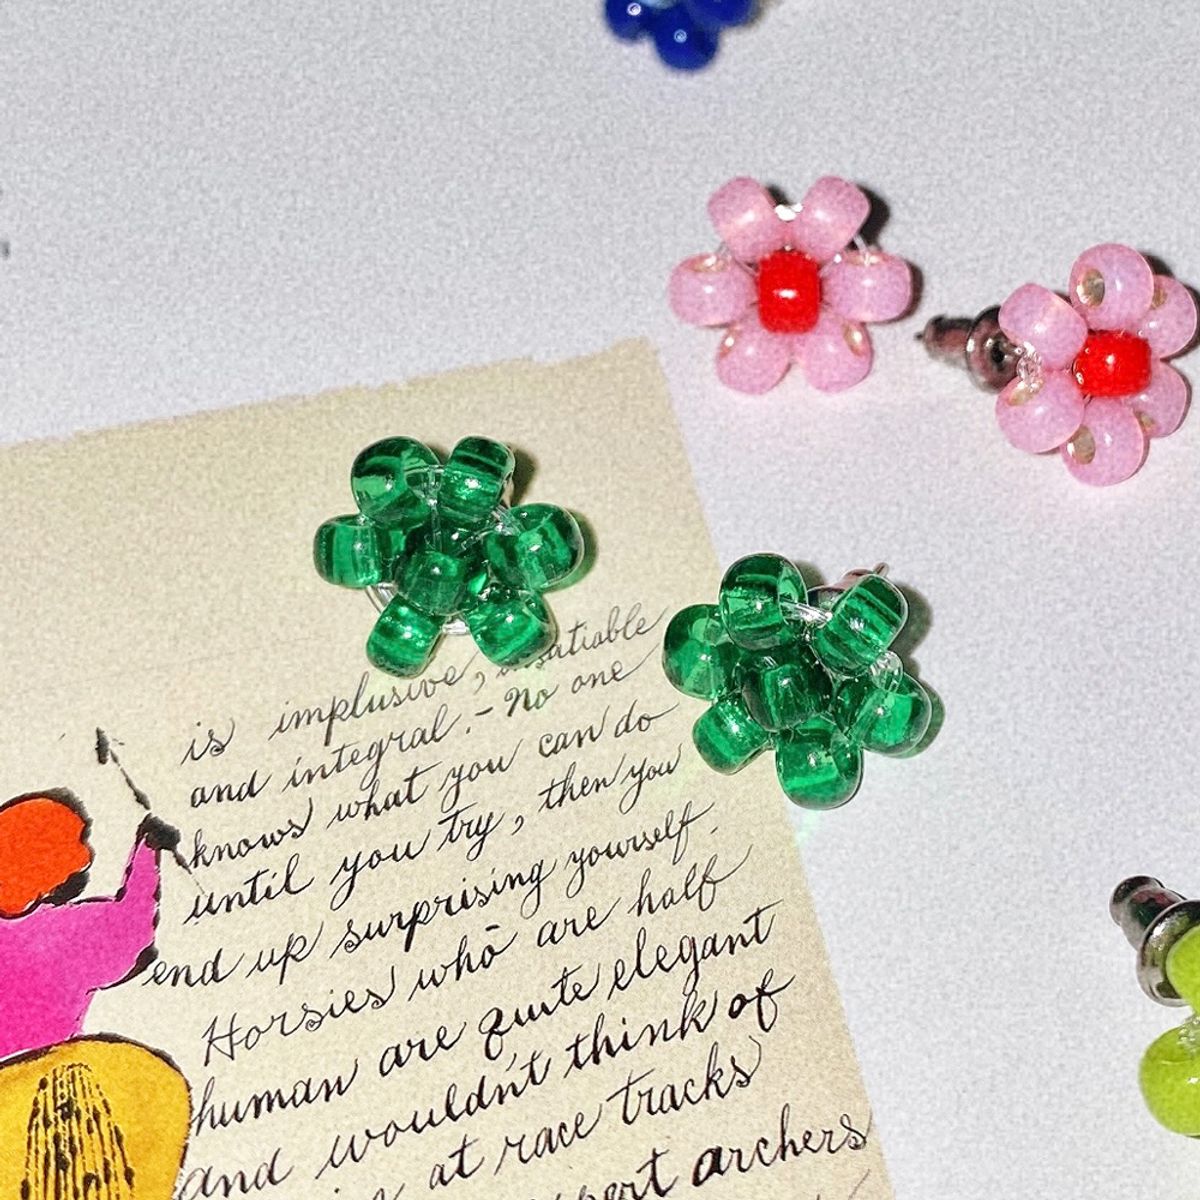 is implusive, insatiable
and integral. - No one
knows what you can do
until you try, then you
end up surprising yourself.
Horsies who are half
human are quite elegant
and wouldn't think of
at race tracks
archers